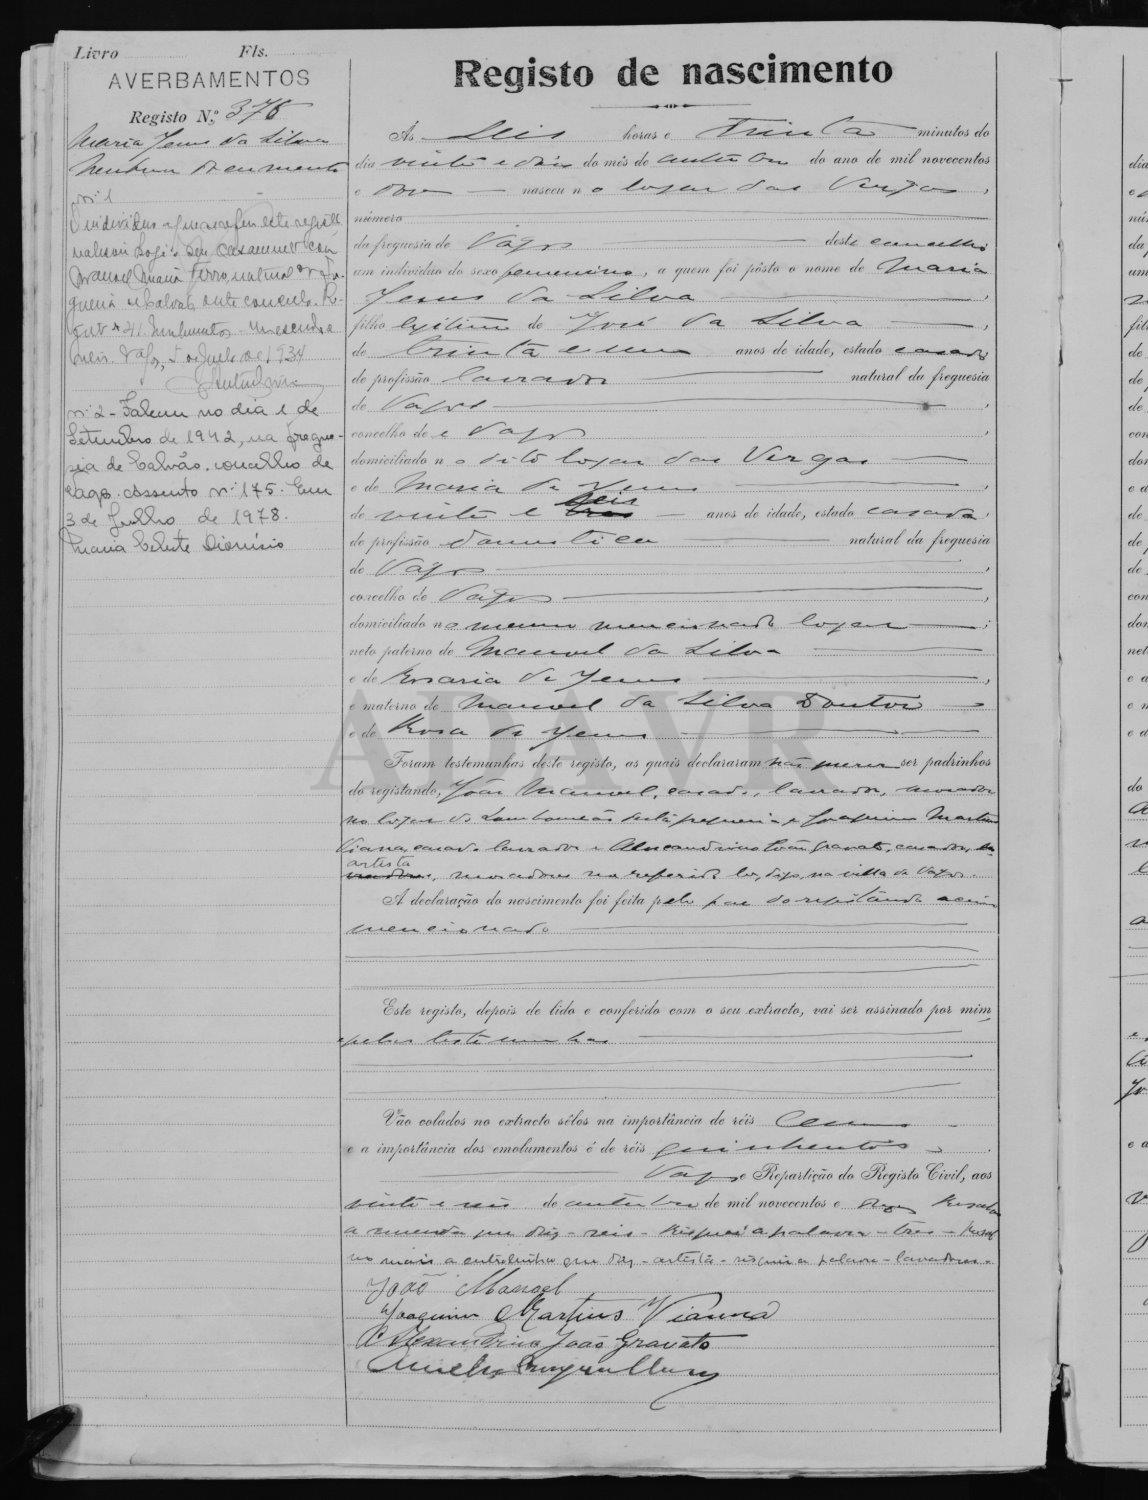 Livro Fls.
AVERBAMENTOS
Registo N.º 376
Maria Jesus da Silva
Nenhum documento
nº 1
O individuo a que se refere este registo
realisou hoje o seu casamento com
Manuel Maria Ferro, natural da fre-
guesia de Calvão, deste concelho. R.
Vagos, 5 de Julho de 1934
nº 2 - Faleceu no dia 1 de
Setembro de 1942, na fregue-
zia de Calvão, concelho de
Vagos. Assento nº 175. Em
3 de Julho de 1978.
Maria Celeste Dionísio
Registo de nascimento
Às Seis horas e Trinta minutos do
dia vinte e dois do mês de outubro do ano de mil novecentos
e onze nasceu no logar das Vergas,
número
da freguesia de Vagos deste concelho
um indivíduo do sexo femenino, a quem foi pôsto o nome de Maria
Jesus da Silva,
filho legitimo de José da Silva,
de trinta e um anos de idade, estado casado
de profissão lavrador natural da freguesia
de Vagos,
concelho de e Vagos,
domiciliado no dito logar das Vergas
e de Maria de Jesus,
seis
de vinte e tres anos de idade, estado casada
de profissão domestica natural da freguesia
de Vagos,
concelho de Vagos,
domiciliado no mesmo mencionado logar;
neto paterno de Manuel da Silva
e de Rosaria de Jesus,
e materno de Manuel da Silva Doutor
e de Rosa de Jesus
Foram testemunhas deste registo, as quais declararam não querer ser padrinhos
do registando, João Manuel, casado, lavrador, morador
no logar do Lombomeão desta freguesia, e Joaquim Martins
Viana, casado lavrador e Alexandrino João Gravato, casado,
artista
lavradores, moradores no referido lo, digo, na villa de Vagos.
A declaração do nascimento foi feita pelo pae do registando acima
mencionado
Este registo, depois de lido e conferido com o seu extracto, vai ser assinado por mim,
e pelas testemunhas
Vão colados no extracto sêlos na importância de réis Cem
e a importância dos emolumentos é de réis quinhentos
Vagos e Repartição do Registo Civil, aos
vinte e seis de outubro de mil novecentos e onze Resalvo
a emenda que diz - seis - Risquei a palavra - tres - Resal
vo mais a entrelinha que diz - artista - risquei a palavra - lavradores.
João Manoel
Joaquim Martins Vianna
Alexandrino João Gravato
ADAVR